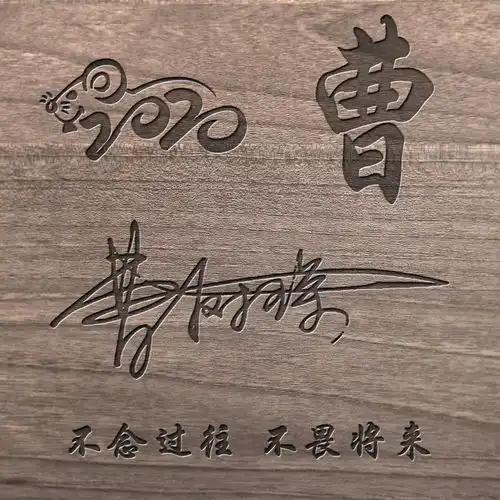 2020 曹
不念过往 不畏将来